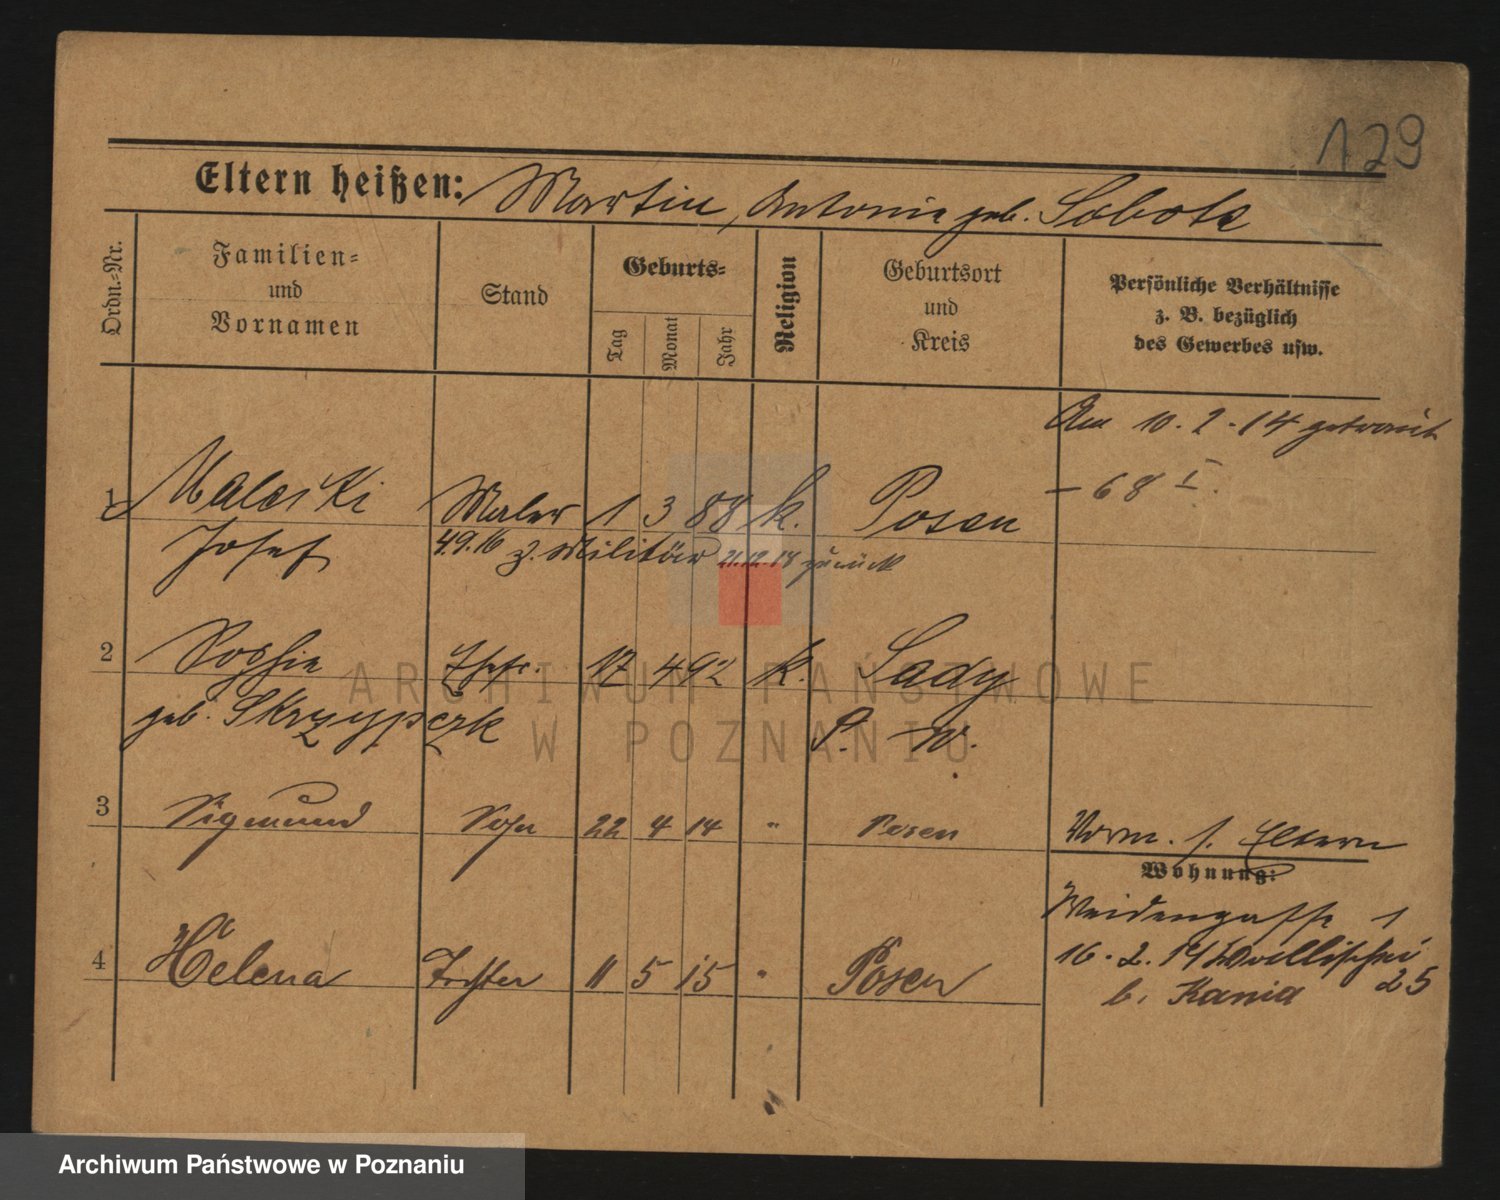 129
Eltern heißen: Martin, Antonie geb. Sobota
Ordn.-Nr.
Familien-
und
Vornamen
Stand
Geburts-
Tag
Monat
Jahr
Religion
Geburtsort
und
Kreis
Persönliche Verhältnisse
z. B. bezüglich
des Gewerbes usw.
Am 10.2.14 getraut
1 Maleski Maler 1 3 88 k. Posen
- 68 I.
Josef 4.9.16 z. Militär 21.12.18 zurück
2 Sophie Ehefr. 17 4 92 k. Sady
geb. Skrzypczk P. W.
3 Sigmund Sohn 22 4 14 " Posen
Vorm. s. Eltern
Wohnung:
Weidengasse 1
4 Helena Tochter 11 5 15 " Posen
16.2.14 Wallischei 25
b. Kania
ARCHIWUM PAŃSTWOWE
W POZNANIU
Archiwum Państwowe w Poznaniu